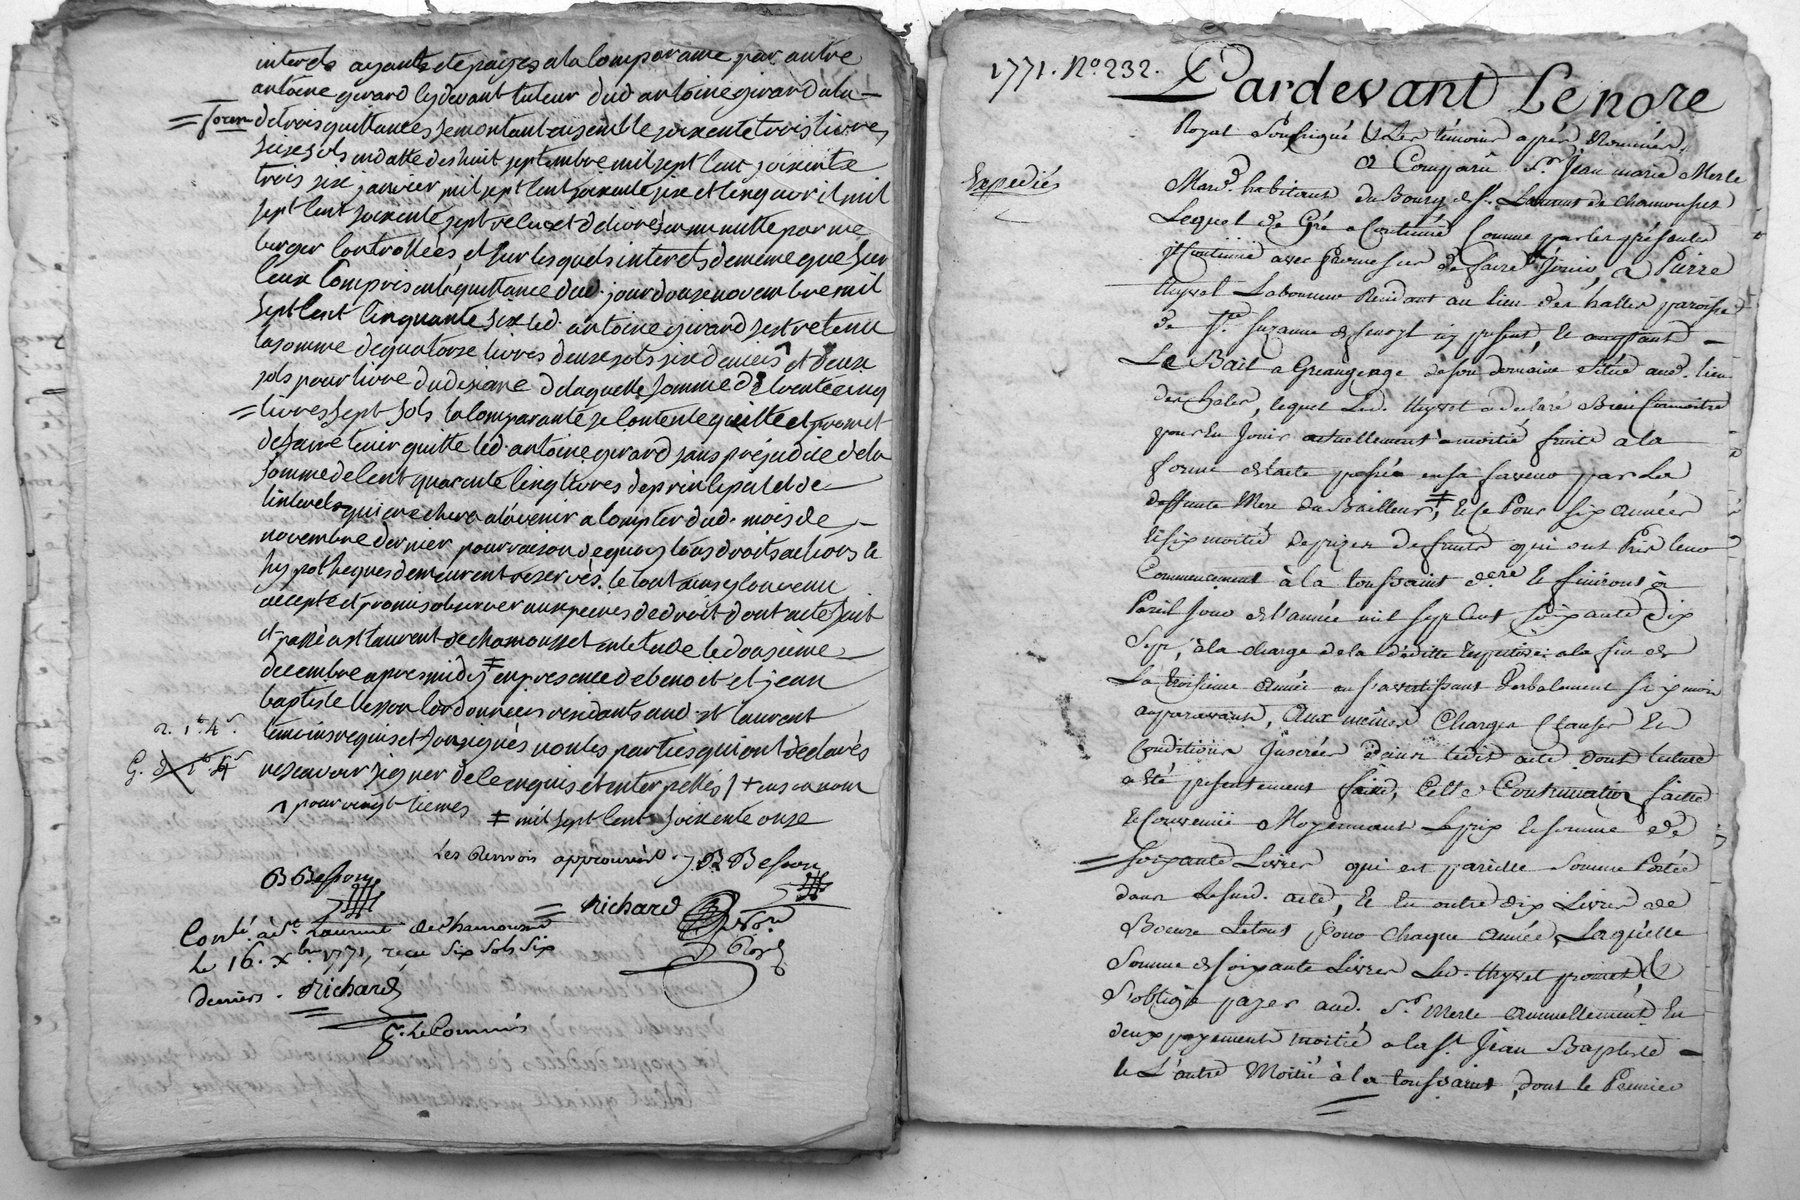 interets ayants etepayes a la Comparante par autre
antoine girard cydevant tuteur dud antoine girard
= detrois quittances se montant ensemble soixente trois livres
seize sols en datte des huit septembre mil sept Cent soixente
trois six janvier mil sept Cent soixente six et Cinq avril mil
sept Cent soixente sept relues et delivrés en minutte par me
berger Controllées et sur lesquels interets de meme que sur
Ceux Compris en la quittance dud. jour douze novembre mil
sept Cent Cinquante six led. antoine girard s'est retenu
la somme de quatorze livres deux sols six deniers et deux
sols pour livre du dixiame de laquelle somme de trente cinq
= livres sept sols la Comparante se Contente quitte et promet
de faire tenir quitte led. antoine girard sans préjudice de la
somme de Cent quarente Cinq livres de principal et de
l'interet qui echera a l'avenir a Compter dud. mois de
novembre dernier pour raison de quoy tous droits actions et
hypotheques demeurent reservés. le tout ainsy Convenu
accepté et promis observer aux peines de droit dont acte fait
et passé a st laurent de chamousset en letude le douzieme
decembre apres midy ≠ en presence de benoit et jean
baptiste besson Cordonniers residants aud. st laurent
temoins requis et soussignés non les parties qui ont declarés
ne scavoir signer de ce enquis et interpellés
pour vingtiemes ≠ mil sept Cent soixente onze
Les Renvois approuvés. J. B. Besson
B Besson
= Richard
Conlé. à St. Laurent de chamousset
Le 16. Xbre 1771, reçu Six Sols Six
deniers. Richard
2. 1# 4s
1771. No. 232. Pardevant Le nore
Royal Soussigné & Les témoins aprés Nommés,
a Comparû Sr. Jean marie Merle
Expediés
Mard. habitant du Bourg de St. Laurent de chamousset
Lequel de Gré a Continué Comme par les présentes
Il Continue avec promesse de faire Jouir, a Pierre
Laboureur Residant au lieu des halles paroisse
de Ste. Suzanne icy present, et acceptant
Le Bail a Grangeage de son domaine Situé aud. lieu
des hales, lequel Led. a declaré Bien Connoitre
pour En Jouir actuellement a moitié fruits a la
forme de l'acte passé en sa faveur par La
deffunte Mere du Bailleur, ≠ Et Ce Pour Six Années
Et six moitié de prises de fruits qui ont Pris leur
Commencement à la toussaint dere Et finiront à
Pareil Jour de l'année mil sept Cent soixante dix
Sept, à la charge de la dédite Respective a la fin de
La troisieme Année en s'avertissant Verbalement six mois
auparavant, Aux mêmes Charges Clauses Et
Conditions Inserées dans ledit acte dont lecture
a été presentement faitte, Cette Continuation faitte
Et Convenüe Moyennant Le prix Et somme de
= soixante Livres qui est pareille Somme Portée
dans Le sud. acte, Et En outre dix Livres de
Beurre Le tout pour chaque Année, Laquelle
Somme de soixante Livres Led. promet, &
S'oblige payer aud. Sr. Merle Annuellement En
deux payements moitié a la St. Jean Baptiste
Et L'autre Moitié à la toussaint, dont le Premier